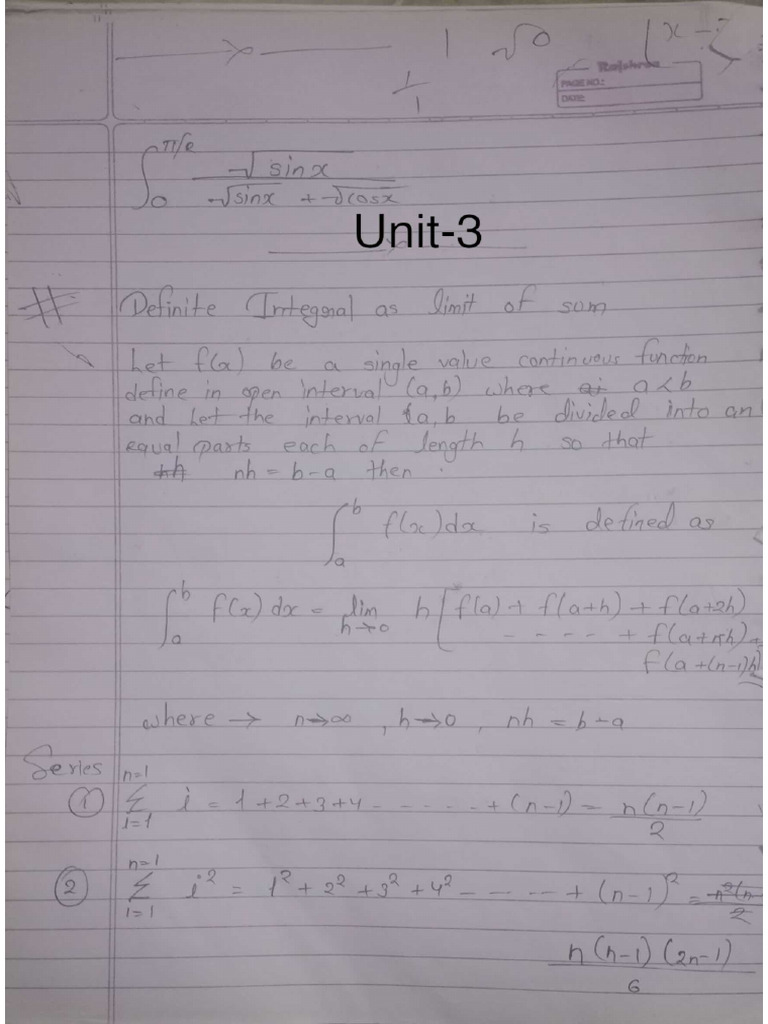 1 √0 |x-
Rajshree
PAGE NO.:
DATE:
1/1
∫₀^π/e √sinx / √sinx + √cosx
Unit-3
# Definite Intregral as limit of sum
Let f(x) be a single value continuous function
define in open interval (a,b) where a<b
and let the interval (a,b be divided into an
equal parts each of length h so that
nh = b-a then
∫ₐᵇ f(x)dx is defined as
∫ₐᵇ f(x) dx = lim h→0 h[f(a) + f(a+h) + f(a+2h)
- - - - + f(a+nh)
f(a+(n-1)h)
where → n→∞ , h→0 , nh = b-a
Series
① n=1 Σ i=1 i = 1+2+3+4 - - - - - + (n-1) = n(n-1)/2
② n=1 Σ i=1 i² = 1² + 2² + 3² + 4² - - - - + (n-1)² =
n(n-1)(2n-1)/6